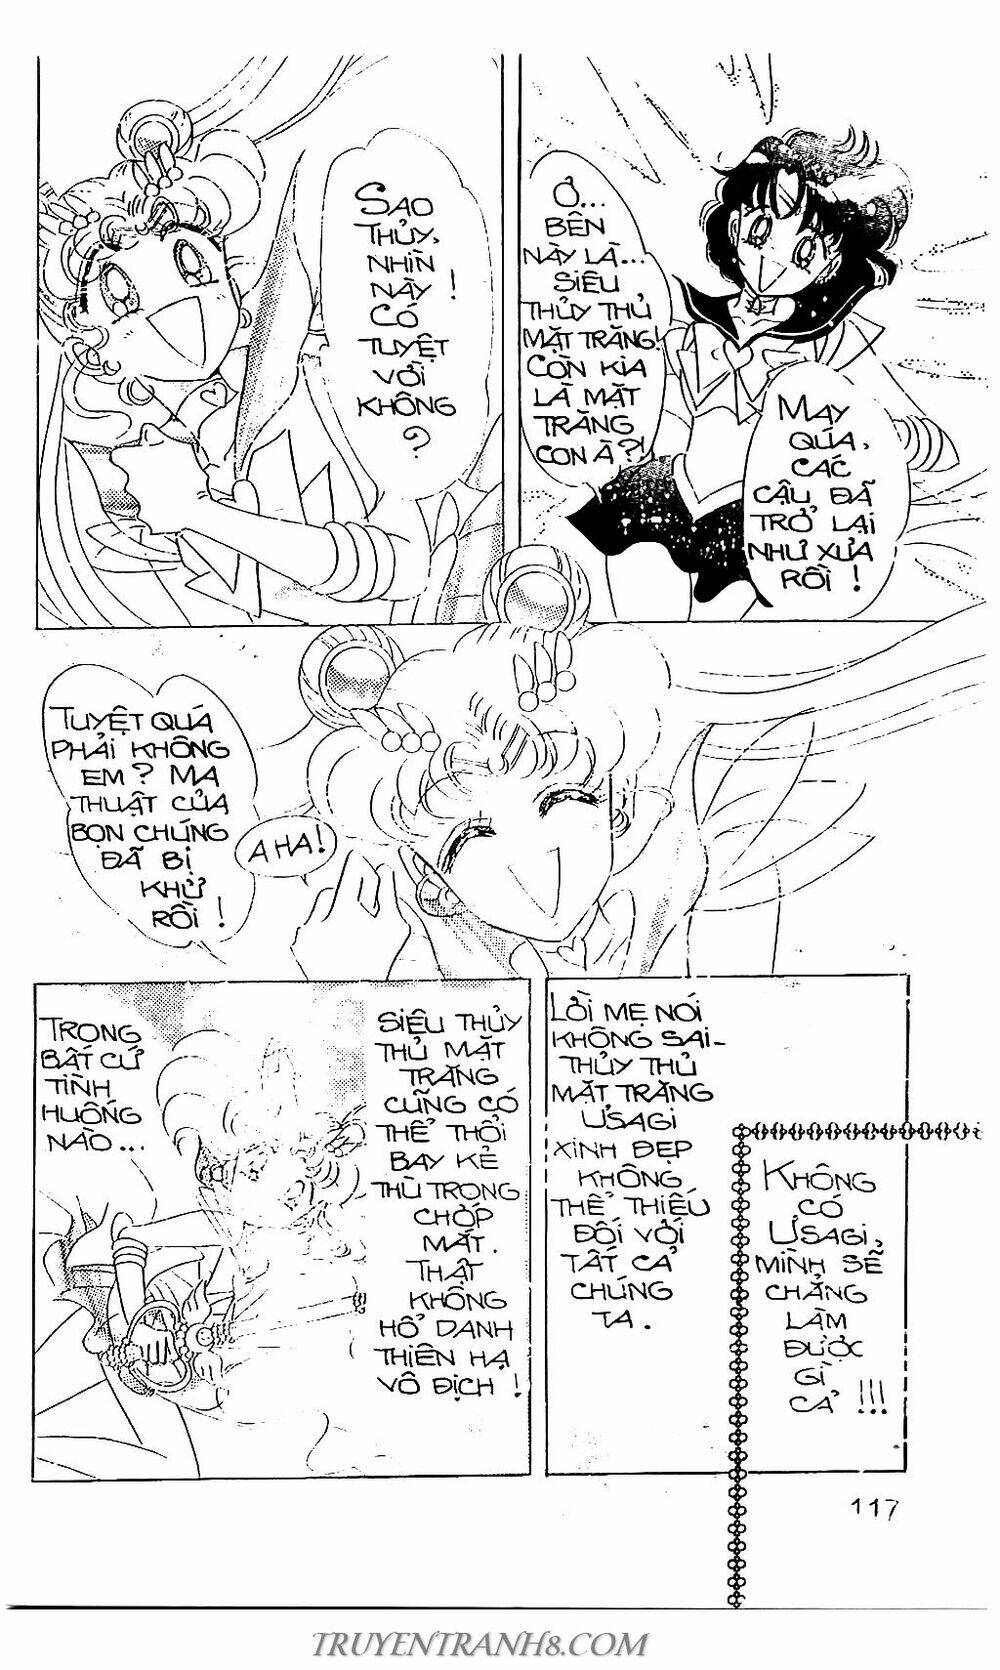 SAO
THỦY,
NHÌN
NÀY !
CÓ
TUYỆT
VỜI
KHÔNG
?
Ơ...
BÊN
NÀY LÀ...
SIÊU
THỦY THỦ
MẶT TRĂNG!
CÒN KIA
LÀ MẶT
TRĂNG
CON À?!
MAY
QÚA,
CÁC
CẬU ĐÃ
TRỞ LẠI
NHƯ XƯA
RỒI !
TUYỆT QUÁ
PHẢI KHÔNG
EM? MA
THUẬT CỦA
BỌN CHÚNG
ĐÃ BỊ
KHỬ
RỒI !
A HA!
TRONG
BẤT CỨ
TÌNH
HUỐNG
NÀO...
SIÊU THỦY
THỦ MẶT
TRĂNG
CŨNG CÓ
THỂ THỔI
BAY KẺ
THÙ TRONG
CHỚP
MẮT.
THẬT
KHÔNG
HỔ DANH
THIÊN HẠ
VÔ ĐỊCH !
LỜI MẸ NÓI
KHÔNG SAI-
THỦY THỦ
MẶT TRĂNG
USAGI
XINH ĐẸP
KHÔNG
THỂ THIẾU
ĐỐI VỚI
TẤT CẢ
CHÚNG
TA.
KHÔNG
CÓ
USAGI,
MÌNH SẼ
CHẲNG
LÀM
ĐƯỢC
GÌ
CẢ !!!
117
TRUYENTRANH8.COM